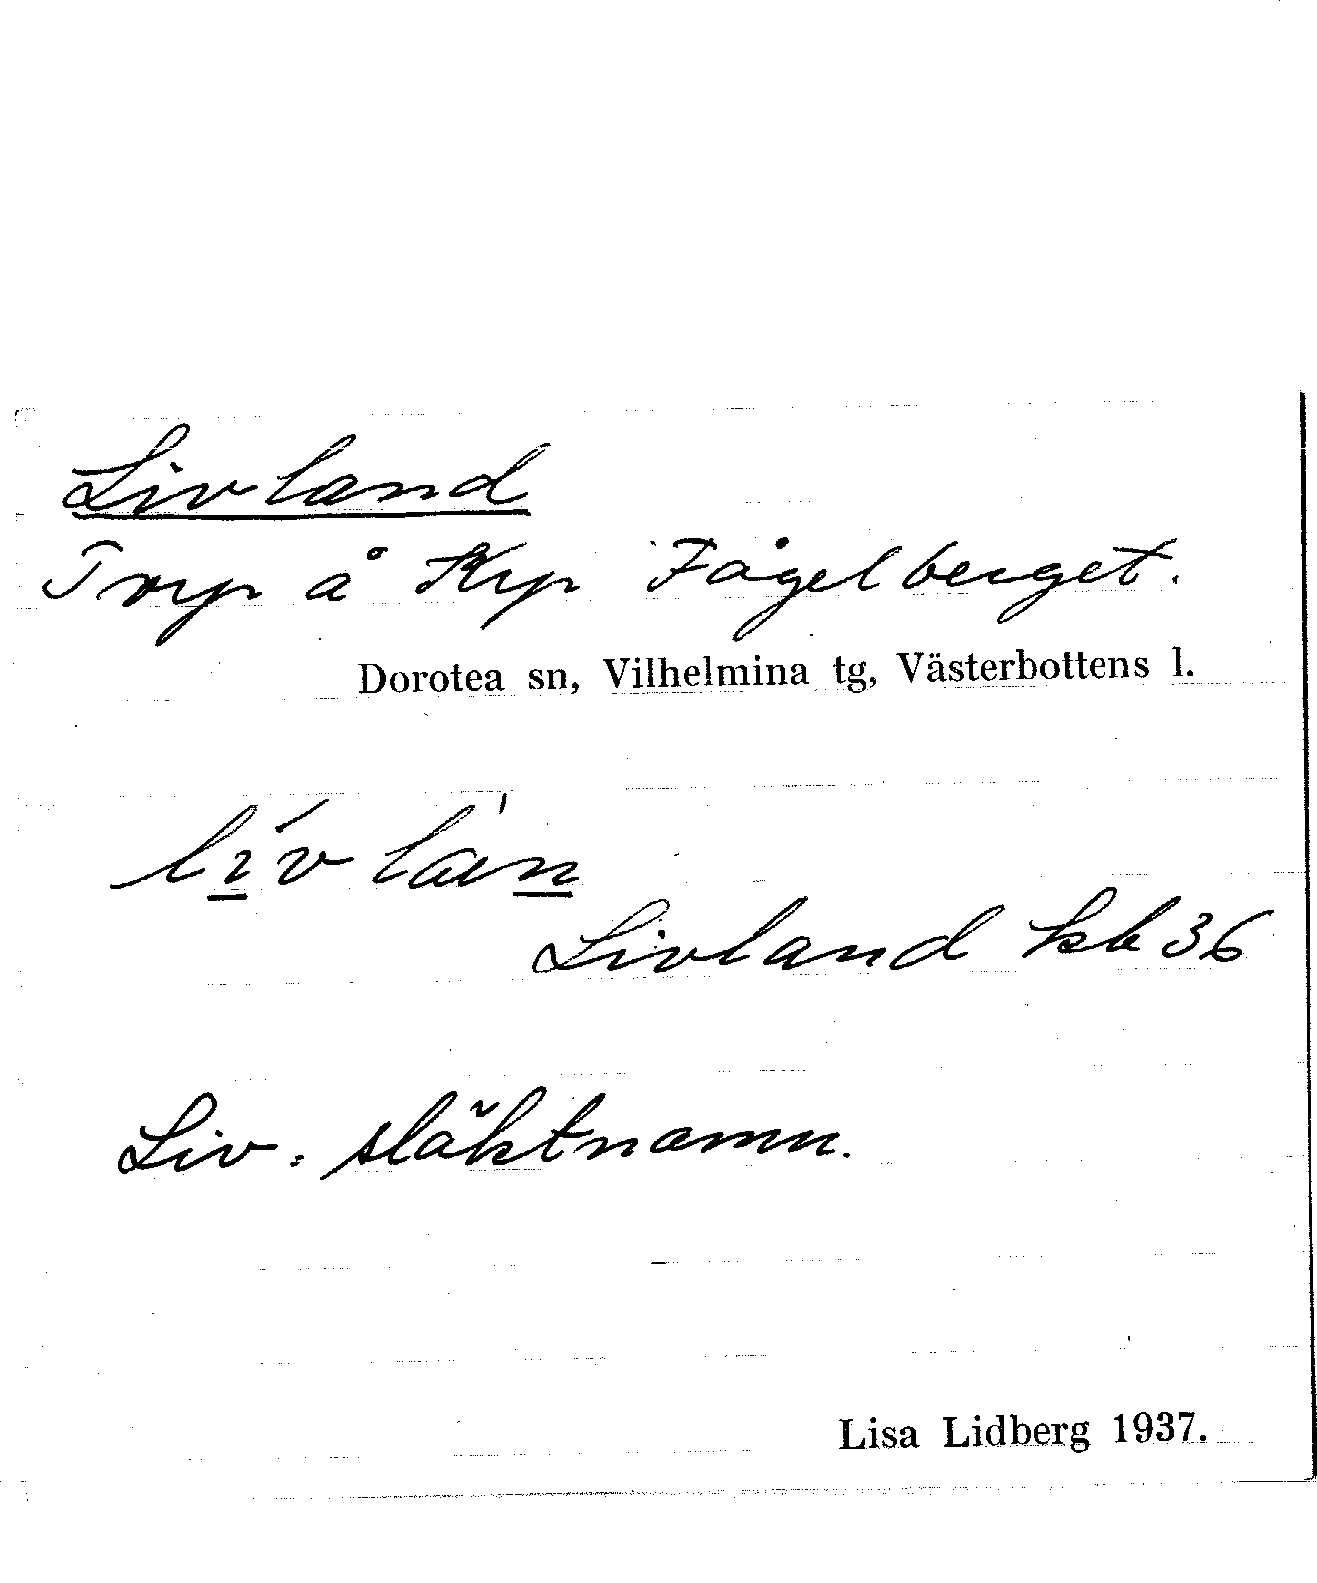 Livland
Torp å Krp Fågelberget.
Dorotea sn, Vilhelmina tg, Västerbottens l.
Livland kb 36
Liv: släktnamn.
Lisa Lidberg 1937.